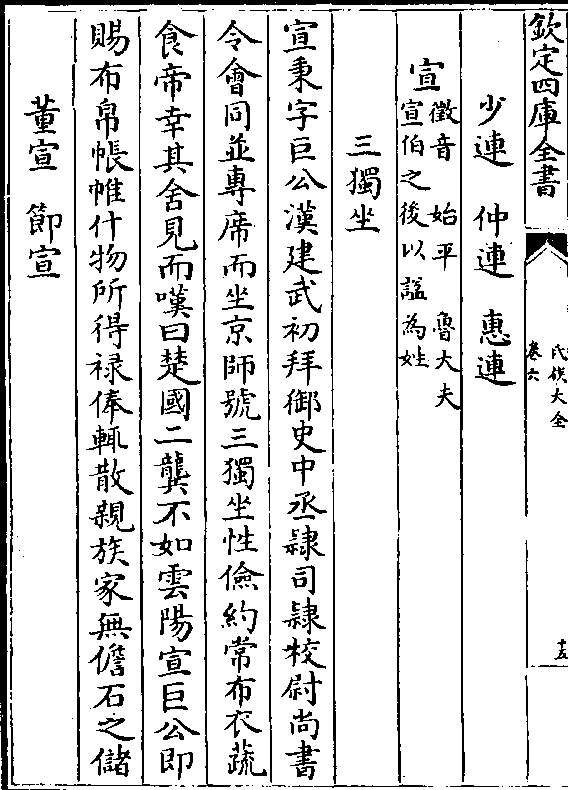 欽定四庫全書
氏族大全
卷六
少連　仲連　惠連
宣
徵音　始平　魯大夫
宣伯之後以諡為姓
三獨坐
宣秉字巨公漢建武初拜御史中丞隸司隸校尉尚書
令會同並專席而坐京師號三獨坐性儉約常布衣蔬
食帝幸其舍見而嘆曰楚國二龔不如雲陽宣巨公即
賜布帛帳帷什物所得祿俸輒散親族家無儋石之儲
董宣　節宣